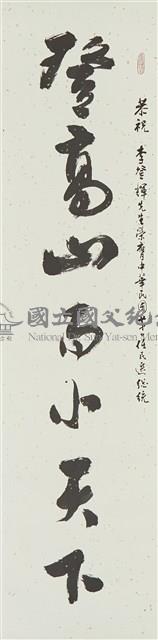 恭祝 李登輝先生榮膺中華民國第一任民選總統
登高山而小天下
國立國父紀念館
National Dr. Sun Yat-sen Memorial